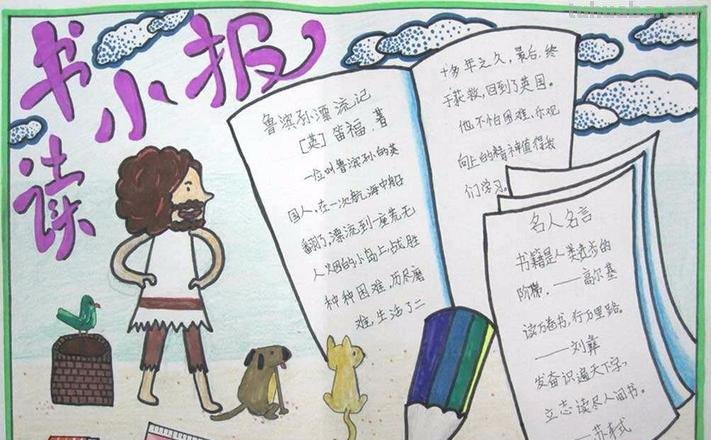 读书小报
鲁滨孙漂流记
[英] 笛福 著
一位叫鲁滨孙的英
国人,在一次航海中船
翻了,漂流到一座荒无
人烟的小岛上,战胜
种种困难,历尽磨
难,生活了二
十多年之久,最后,终
于获救,回到了英国。
他不怕困难、乐观
向上的精神值得我
们学习。
名人名言
书籍是人类进步的
阶梯。——高尔基
读万卷书,行万里路
——刘彝
发奋识遍天下字,
立志读尽人间书。
——苏轼